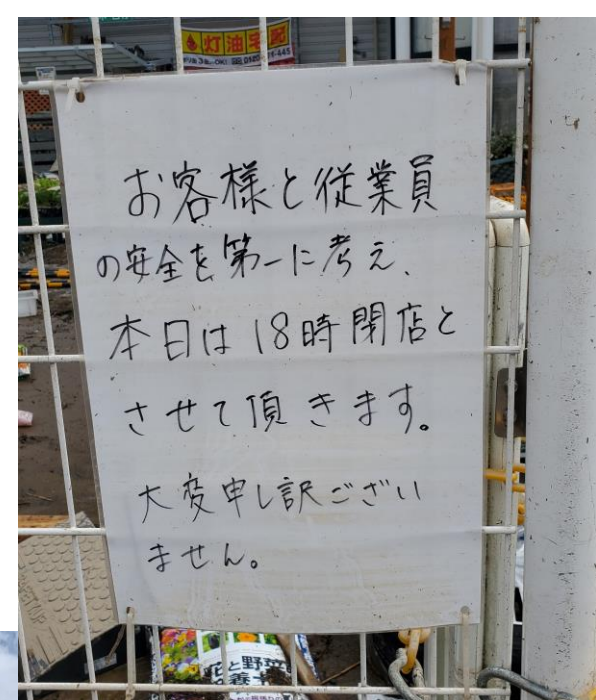 灯油宅配
お客様と従業員
の安全を第一に考え、
本日は18時閉店と
させて頂きます。
大変申し訳ござい
ません。
花と野菜